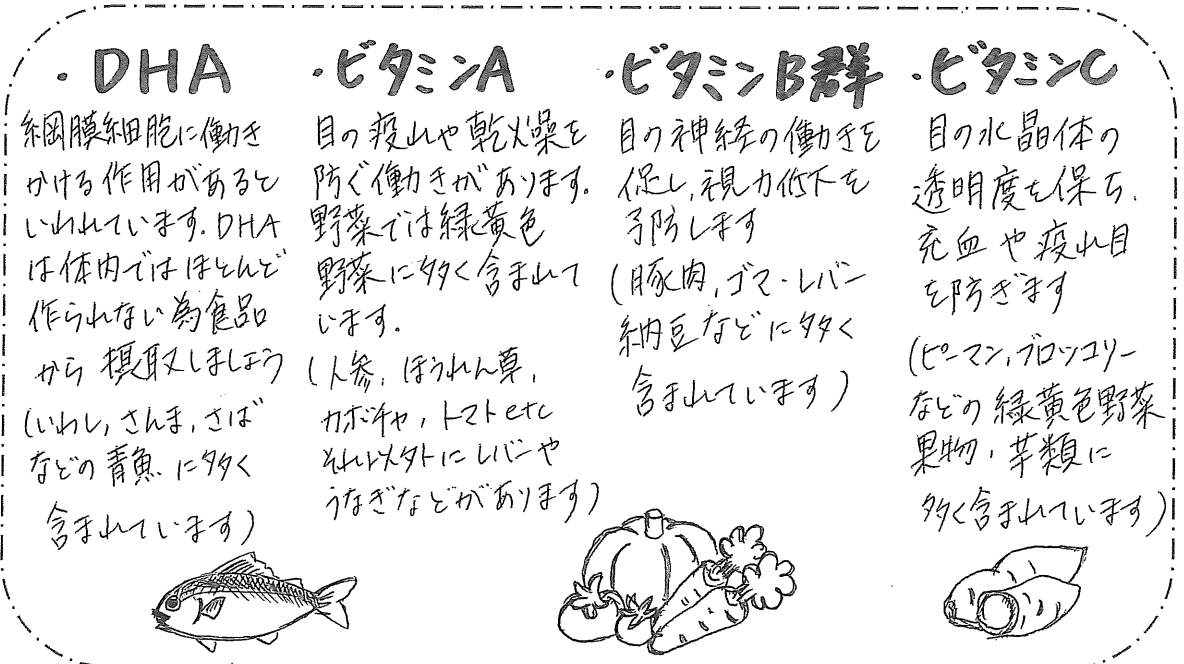 ・DHA
網膜細胞に働き
かける作用があると
いわれています。DHA
は体内ではほとんど
作られない為食品
から摂取しましょう
(いわし,さんま,さば
などの青魚に多く
含まれています)
・ビタミンA
目の疲れや乾燥を
防ぐ働きがあります.
野菜では緑黄色
野菜に多く含まれて
います.
(人参,ほうれん草,
カボチャ,トマトetc
それ以外にレバーや
うなぎなどがあります)
・ビタミンB群
目の神経の働きを
促し,視力低下を
予防します
(豚肉,ゴマ・レバー
納豆などに多く
含まれています)
・ビタミンC
目の水晶体の
透明度を保ち,
充血や疲れ目
を防ぎます
(ピーマン,ブロッコリー
などの緑黄色野菜
果物,芋類に
多く含まれています)